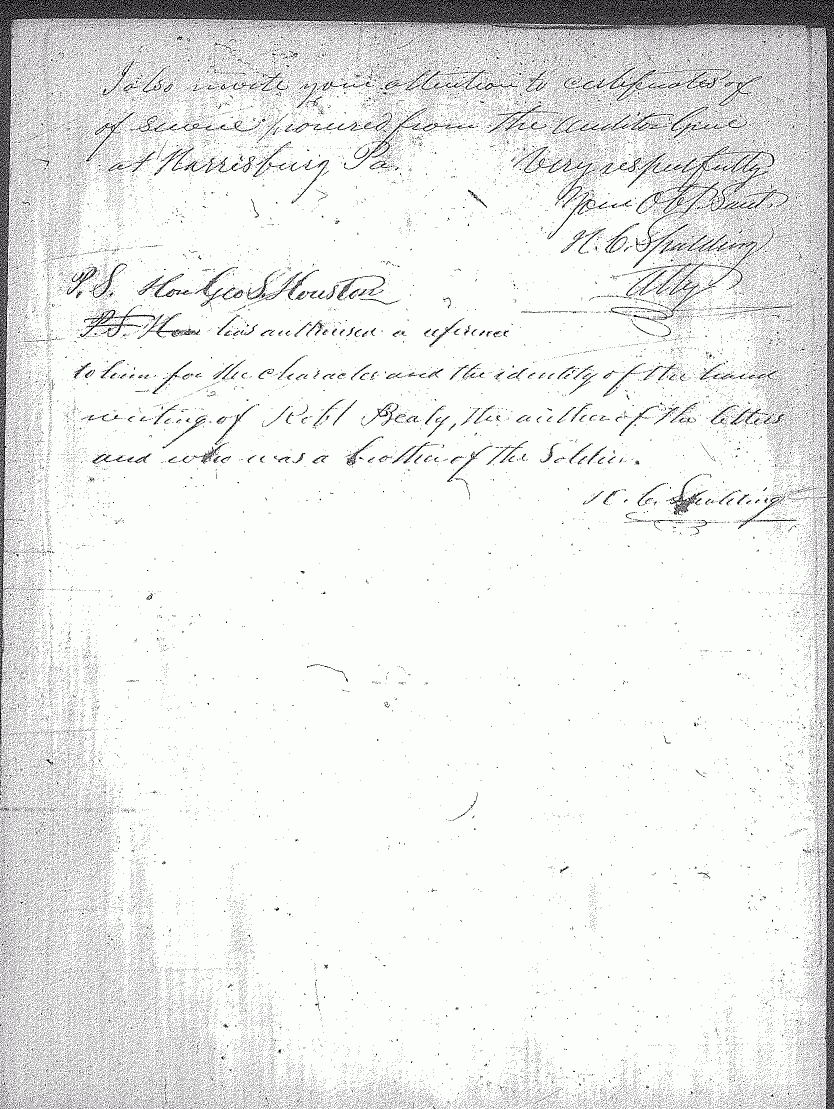 I also invite your attention to certificates of
of service procured from the Auditor Genl
at Harrisburg Pa. Very respectfully
Your Obt Servt
H. C. Spalding
Atty
P. S. Hon Geo S. Houston
P.S. Hon has authorised a reference
to him for the character and the identity of the hand
writing of Robt Beaty, the author of the letters
and who was a brother of the Soldier.
H. C. Spalding